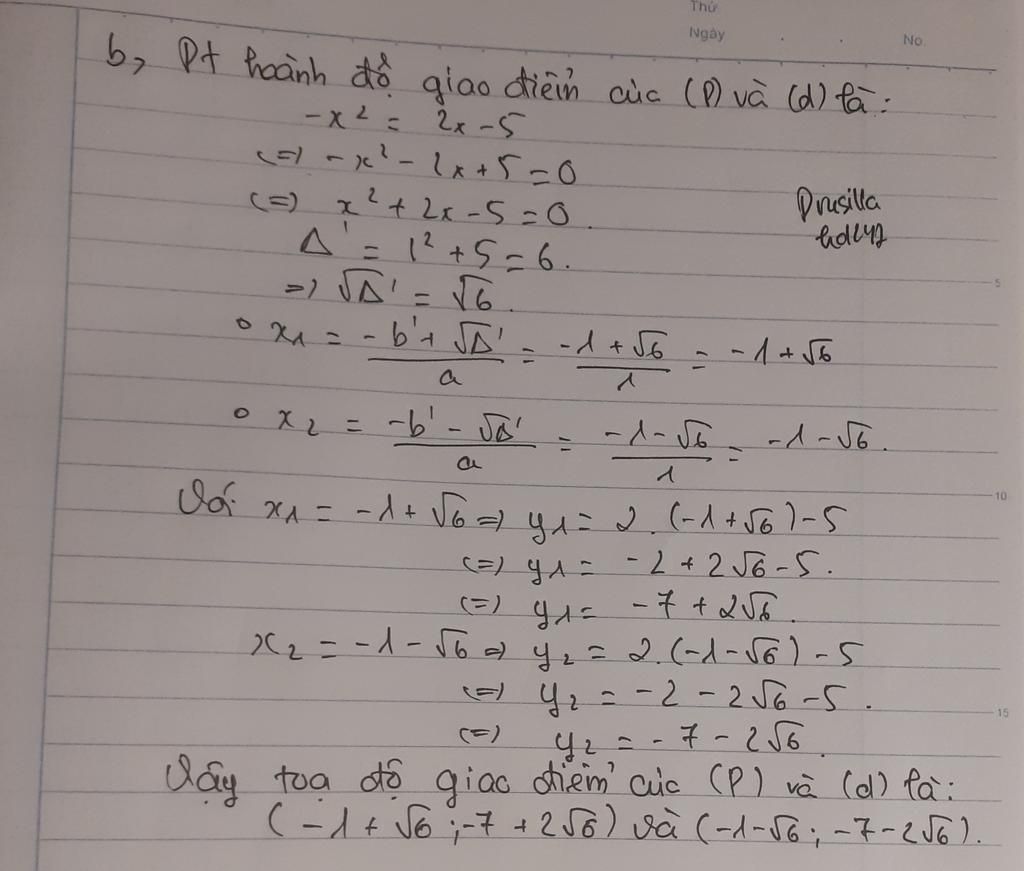 Thứ
Ngày . . No.
b, Pt hoành độ giao điểm của (P) và (d) là:
-x² = 2x-5
<=> -x² - 2x+5=0
<=> x² + 2x - 5 = 0.
Δ' = 1² + 5 = 6.
=> √Δ' = √6.
Drusilla
hdlyz
o x₁ = (-b'+√Δ')/a = (-1+√6)/1 = -1+√6
o x₂ = (-b'-√Δ')/a = (-1-√6)/1 = -1-√6.
Với x₁ = -1+√6 => y₁ = 2.(-1+√6)-5
<=> y₁ = -2+2√6-5.
<=> y₁ = -7+2√6.
x₂ = -1-√6 => y₂ = 2.(-1-√6)-5
<=> y₂ = -2-2√6-5.
<=> y₂ = -7-2√6.
Vậy toạ độ giao điểm của (P) và (d) là:
(-1+√6; -7+2√6) và (-1-√6; -7-2√6).
5
10
15